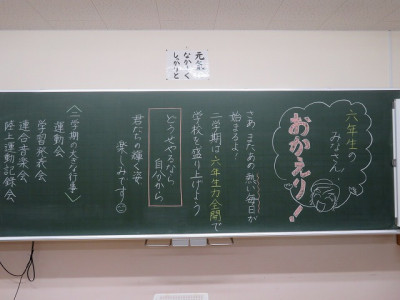 元気に
なか〜く
しっかりと
六年生の
みなさん、
おかえり！
さあ またあの 熱い毎日が
始まるよ！
二学期は 六年生力全開で
学校を盛り上げよう
どうせやるなら
自分から
君たちの輝く姿
楽しみです
〈二学期の大きな行事〉
運動会
学習発表会
連合音楽会
陸上運動記録会